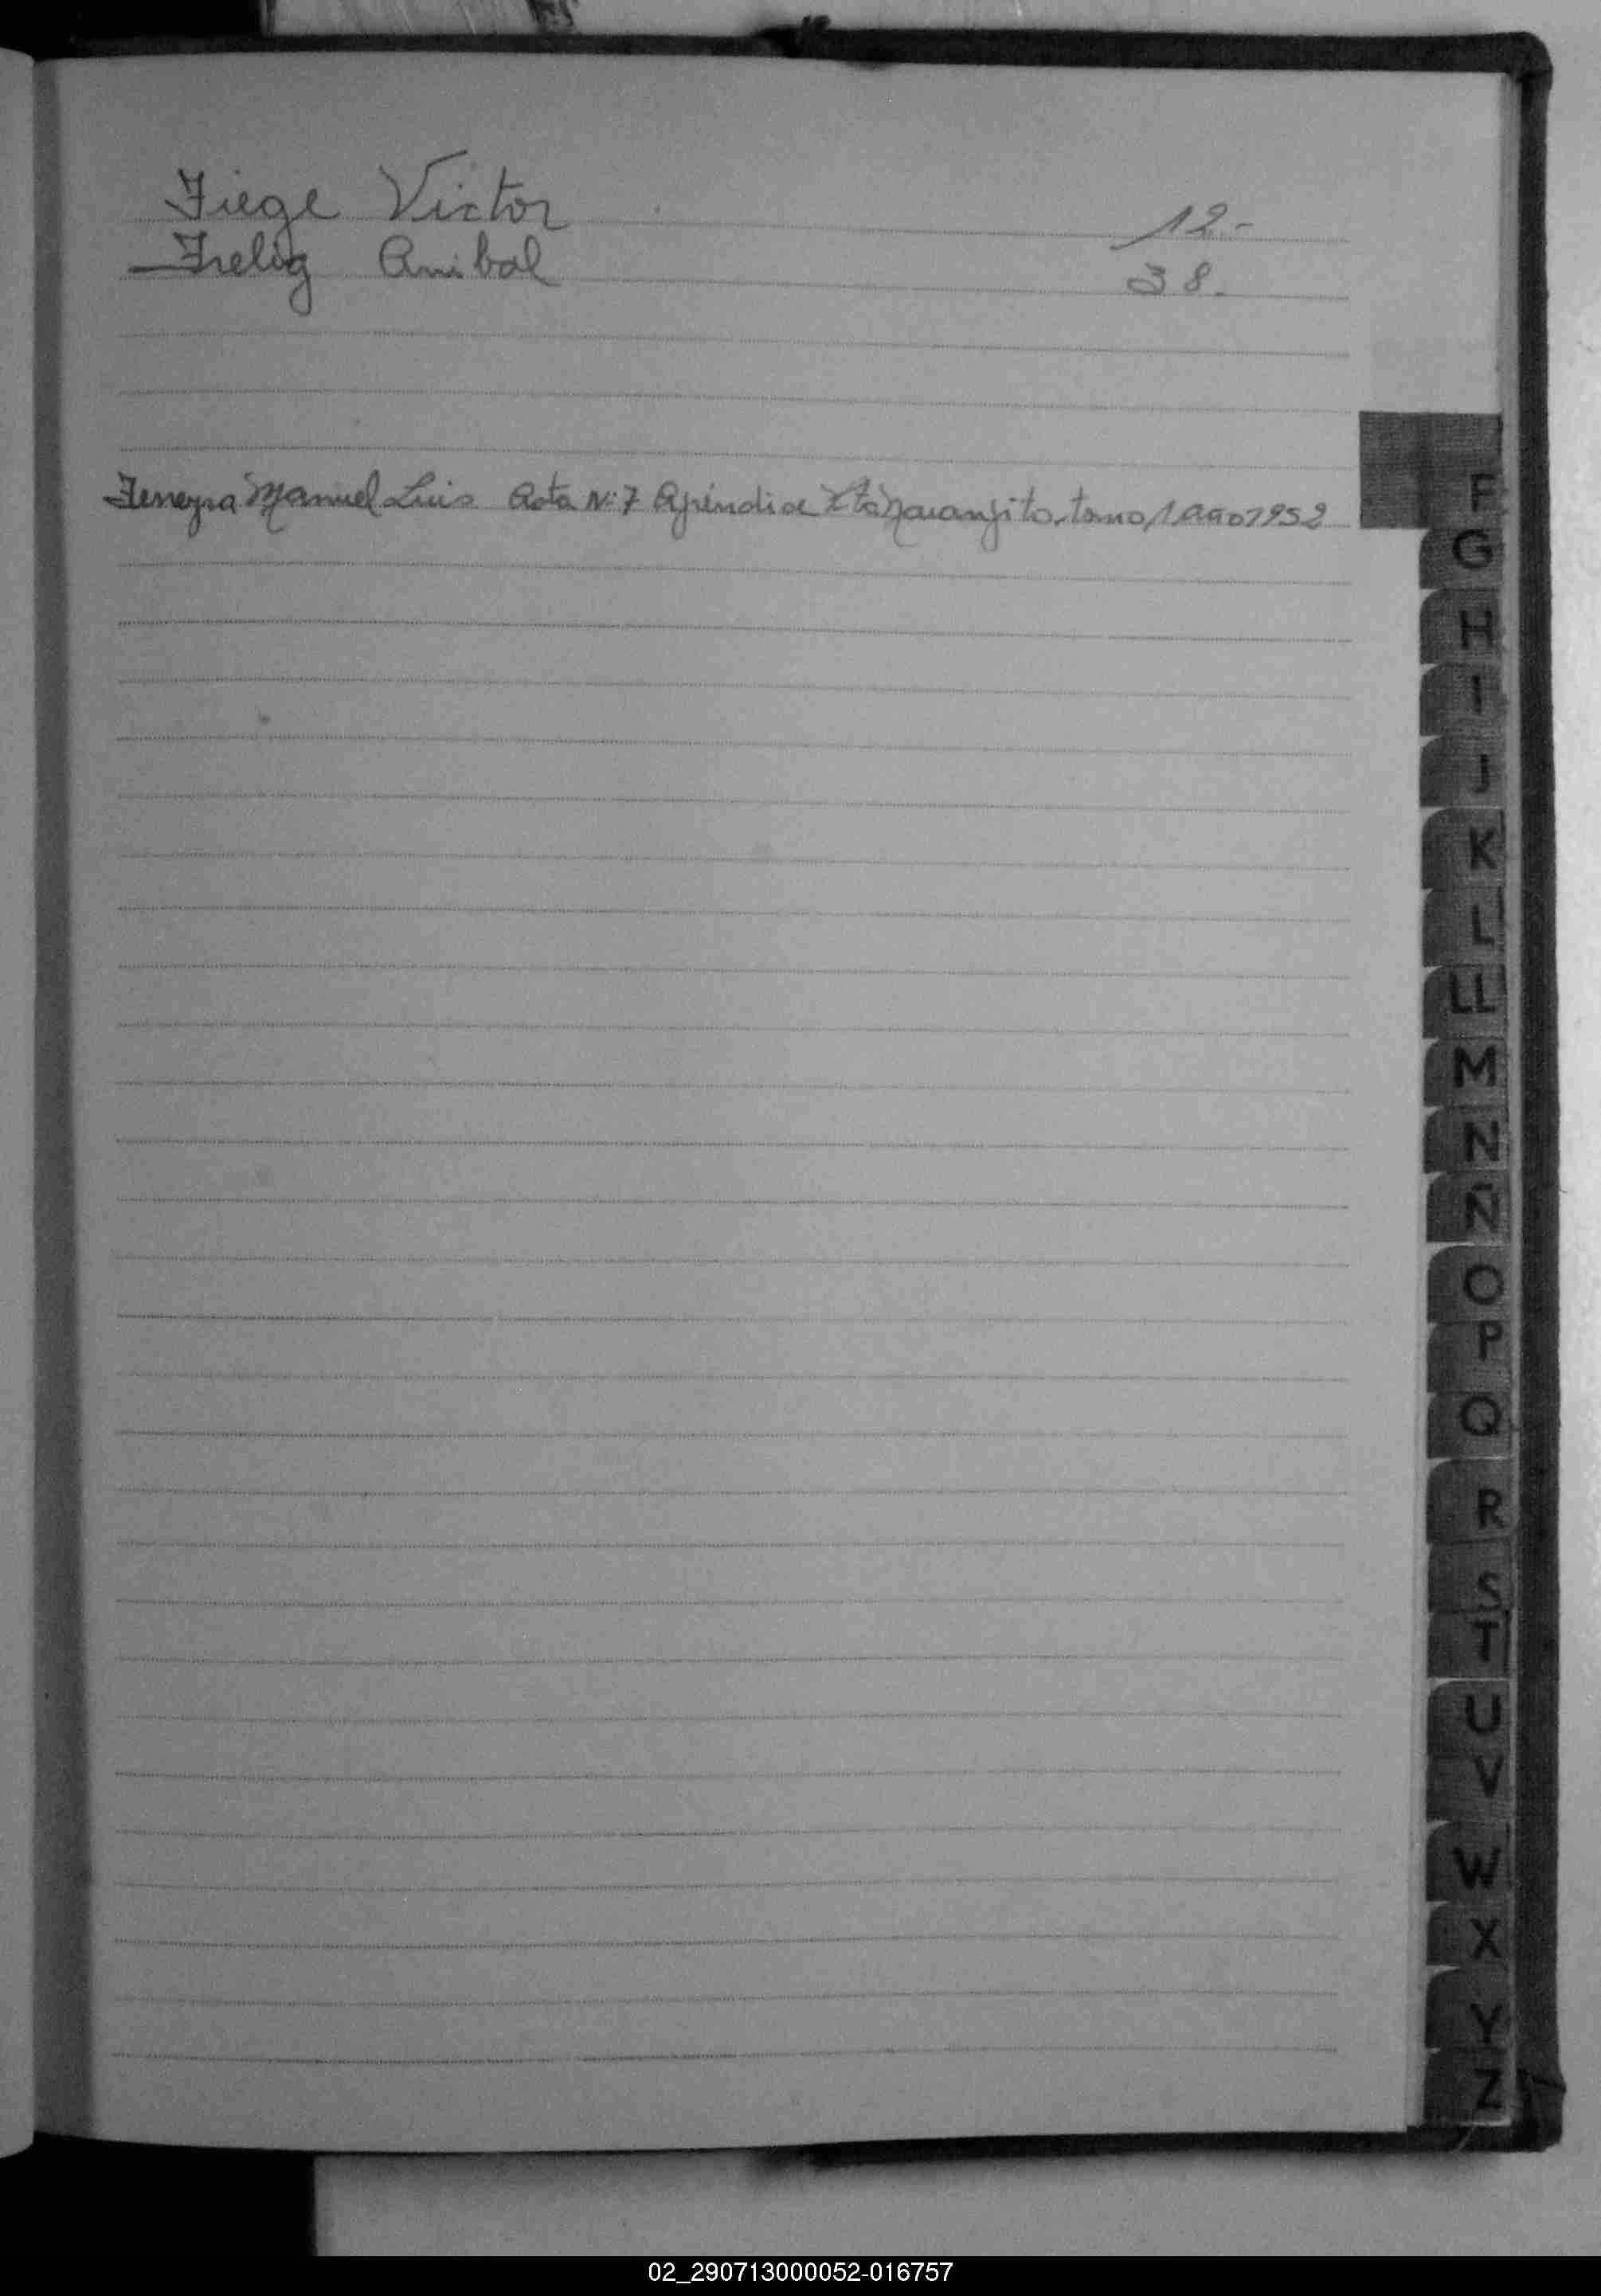 Fiege Victor 12.-
Frelig Anibal 38.
Ferreyra Manuel Luis Acta Nº 7 Apéndice Naranjito, tomo 1 año 1952
F
G
H
I
J
K
L
LL
M
N
Ñ
O
P
Q
R
S
T
U
V
W
X
Y
Z
02_290713000052-016757